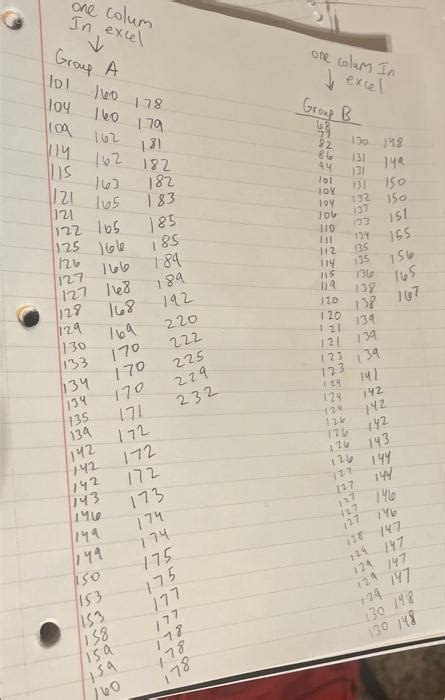 one colum
In excel
Group A
101
104
109
114
115
121
121
122
125
126
127
127
128
129
130
133
134
134
135
139
142
142
142
143
146
149
149
150
153
153
158
159
159
160
160
160
162
162
163
165
165
166
166
168
168
169
170
170
170
171
172
172
172
173
174
174
175
175
177
177
178
178
178
178
179
181
182
182
183
185
185
189
189
192
220
222
225
229
232
one colum In
excel
Group B
68
77
82
86
94
101
104
104
106
110
111
112
114
115
119
120
120
121
121
123
123
124
124
124
126
126
126
126
127
127
127
127
128
129
129
129
129
130
130
130
131
131
131
132
133
133
134
135
135
136
138
138
139
139
139
141
142
142
142
143
144
144
146
146
147
147
147
147
148
148
148
149
150
150
151
155
156
165
167